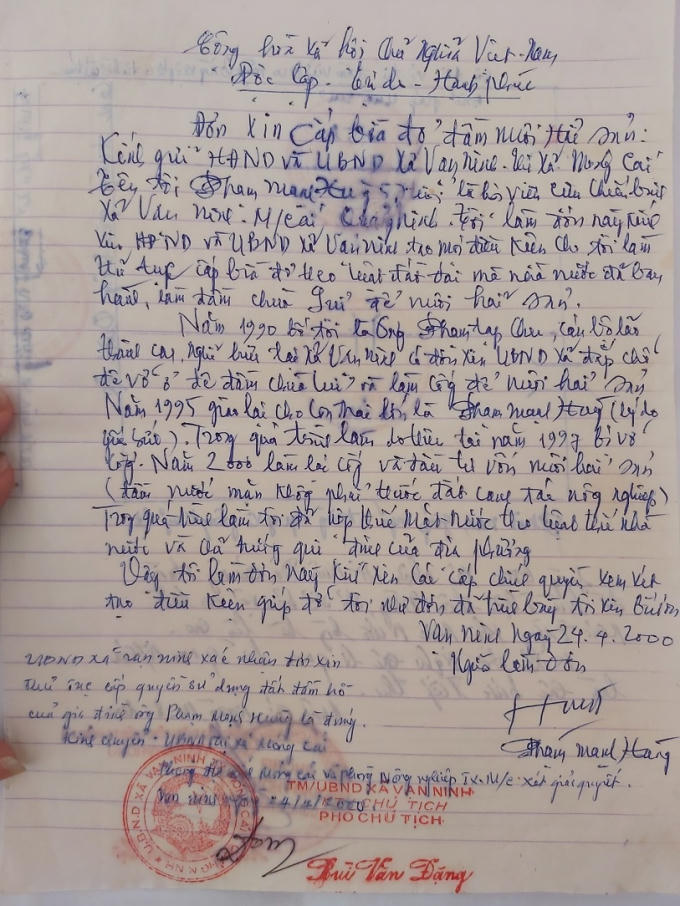 Cộng hòa xã hội chủ nghĩa Việt-Nam
Độc lập - Tự do - Hạnh phúc
Đơn xin cấp bìa đỏ đầm nuôi Hải sản:
Kính gửi HĐND và UBND xã Vạn ninh. Thị xã Móng Cái
Tên tôi Phạm Mạnh Hùng là hội viên cựu chiến binh
xã Vạn ninh. M/Cái Quảng ninh. Tôi làm đơn này kính
xin HĐND và UBND xã Vạn ninh tạo mọi điều kiện cho tôi làm
thủ tục cấp bìa đỏ theo luật đất đai mà nhà nước đã ban
hành, làm đầm nuôi hải sản.
Năm 1990 bố tôi là ông Phạm Chu, cán bộ lão
thành nghỉ hưu tại xã Vạn ninh có đơn xin UBND xã đắp
để đầm và làm cống để nuôi hải sản
Năm 1995 giao lại cho con trai là Phạm Mạnh Hùng (lý do
già yếu). Trong quá trình làm tới năm 1997 bị vỡ
cống. Năm 2000 làm lại cống và đầu tư vốn nuôi hải sản
(đầm nước mặn không phải đất canh tác nông nghiệp)
Trong quá trình làm tôi đã nộp thuế mặt nước theo luật thuế nhà
nước và của địa phương
Vậy tôi làm đơn này kính xin các cấp chính quyền xem xét
tạo điều kiện giúp đỡ tôi như đơn đã trình bày tôi xin
Vạn ninh ngày 24.4.2000
Người làm đơn
Phạm Mạnh Hùng
UBND xã Vạn ninh xác nhận đơn xin
thủ tục cấp quyền sử dụng đất đầm hồ
của gia đình ông Phạm Mạnh Hùng là đúng.
Kính chuyển - UBND thị xã Móng Cái
Móng cái và phòng Nông nghiệp TX. M/C xét giải quyết.
Vạn ninh
TM/UBND XÃ VẠN NINH
CHỦ TỊCH
PHÓ CHỦ TỊCH
Bùi Văn Đặng